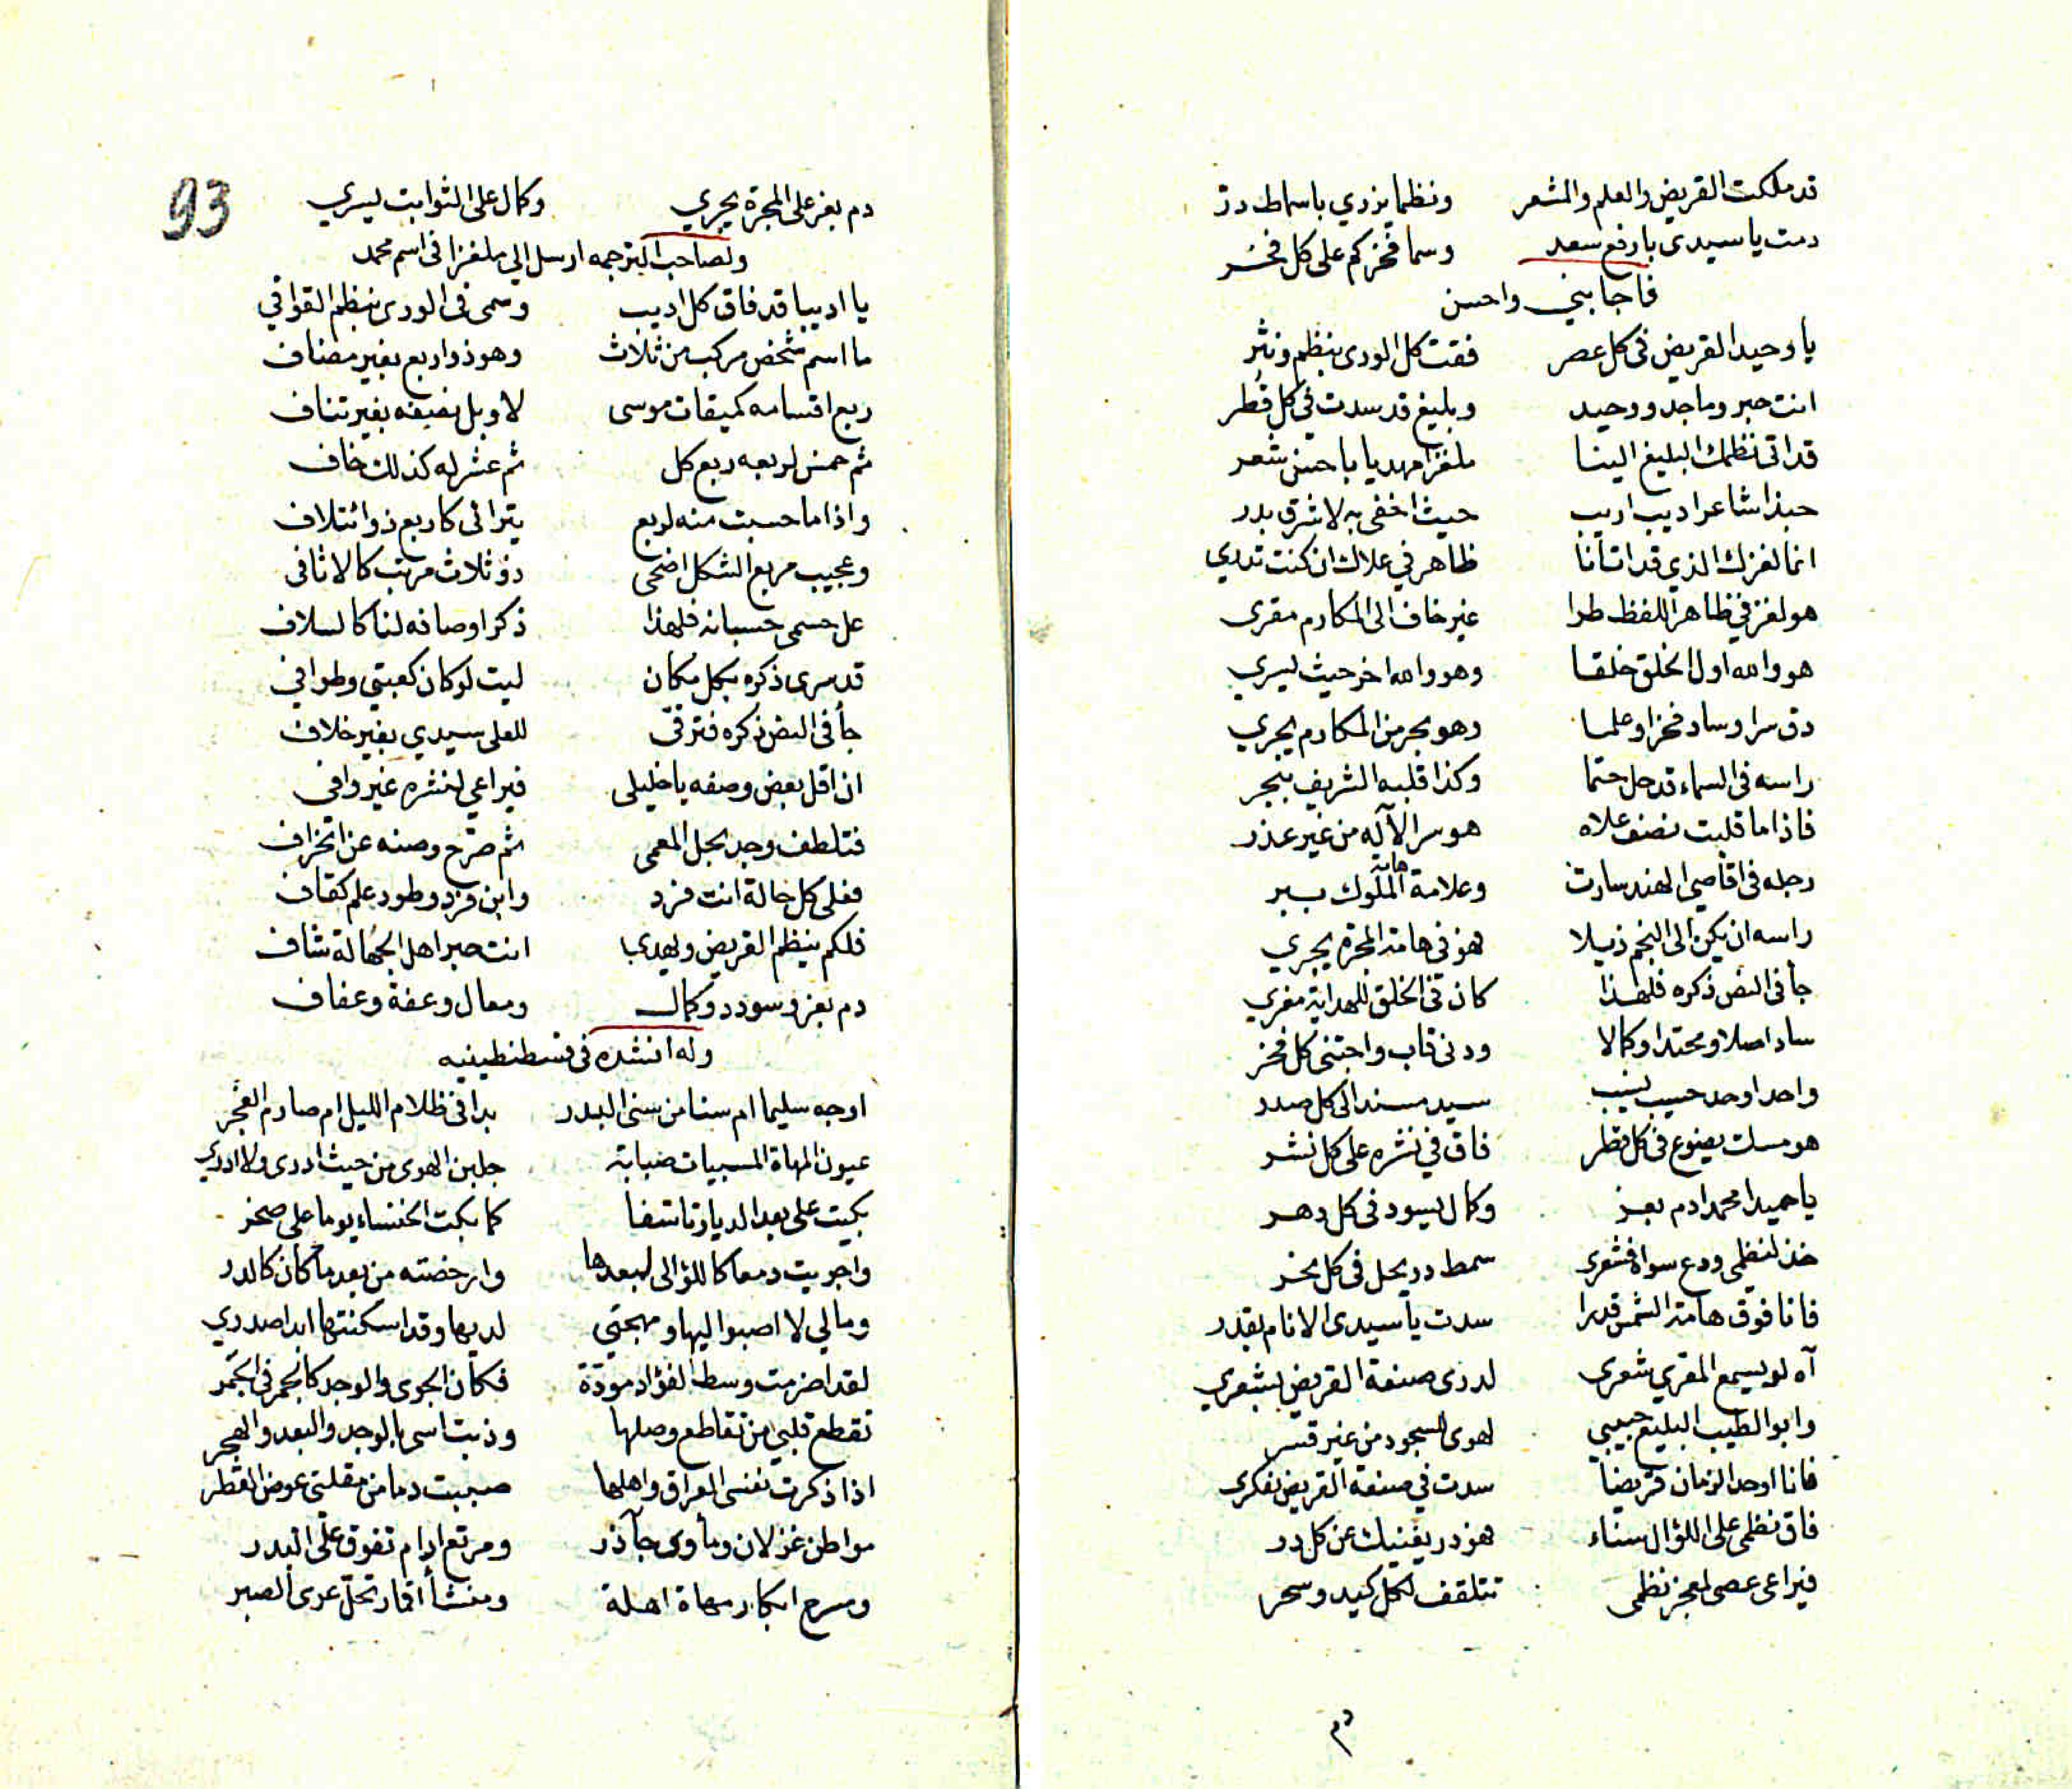 قد ملكت القريض والعلم والشعر ونظما يزدي باسماط در
دمت يا سيدي بارفع سعد وسما فخركم على كل فخر
فاجابني واحسن
يا وحيد القريض في كل عصر ففقت كل الورى بنظم ونثر
انت حبر وماجد ووحيد وبليغ قد سدت في كل قطر
قد اتى نظمك البليغ الينا ملغزا مهديا باحسن شعر
حبذا شاعرا ديب اريب حيث اخفى به لاشرق بدر
انما لغزك الذي قد اتانا ظاهر في علاك ان كنت تدري
هو لغز في ظاهر اللفظ طرا غير خاف الى المكارم مقرى
هو والله اول الخلق خلقا وهو والله اخر حيث يسري
دق سرا وساد فخرا وعلما وهو بحر من المكارم يجري
راسه في السماء قد حل حتما وكذا قلبه الشريف ببحر
فاذا ما قلبت نصف علاه هو سر الآله من غير عذر
رجله في اقاصي الهند سارت وعلامة هامة الملوك بسبر
راسه ان يكن الى النجم ذيلا فهو في هامة المجرة يجري
جا في النص ذكره فلهذا كان في الخلق للهداية مغري
ساد اصلا ومحتدا وكمالا ودنى قاب واجتنى كل فخر
واحد اوحد حسيب نسيب سيد مسند الى كل صدر
هو مسك يضوع في كل قطر فاق في نشره على كل نشر
يا حميدا محمدا دم بعز وكمال يسود في كل دهر
خذ لنظمي ودع سواه فشعرى سمط در يحل في كل نحر
فانا فوق هامة الشمس قدرا سدت يا سيدى الانام بقدر
آه لو يسمع المقري شعرى لدرى صنعة القريض بشعري
وابو الطيب البليغ حبيبي لهوى للسجود من غير قسر
فانا اوحد الزمان قريضا سدت في صنعة القريض بفكرى
فاق نظمي على اللؤال سناء فهو در يغنيك عن كل در
فيراعى عصى لمعجز نظمى تتلقف لكل كيد وسحر
دم
93
دم بعز على المجرة يجري وكمال على الثوابت يسري
ولصاحب الترجمه ارسل الي ملغزا في اسم محمد
يا اديبا قد فاق كل اديب وسمى في الورى بنظم القوافي
ما اسم شخص مركب من ثلاث وهو ذو اربع بغير مضاف
ربع اقسامه كميقات موسى لا وبل نصفه بغير تناف
ثم خمس لربعه ربع كل ثم عشر له كذلك خاف
واذا ما حسبت منه لربع يترائى كاربع ذو ائتلاف
وعجيب مربع الشكل اضحى ذو ثلاث مرتب كالاثافي
عل حسمى حسبانه فلهذا ذكر اوصافه لنا كالسلاف
قد سرى ذكره بكل مكان ليت لو كان كعبتي وطوافي
جأ في النص ذكره فترقى للعلى سيدي بغير خلاف
ان اقل بعض وصفه يا خليلى فيراعي لنشره غير وافى
فتلطف وجد بحل المعمى ثم صرح وصنه عن انحراف
فعلى كل حالة انت فرد وابن فرد وطود علم كقاف
فلكم بنظم القريض ويهدى انت حبر اهل الجهالة شاف
دم بعز وسودد وكمال ومعال وعفة وعفاف
وله انشده في قسطنطينيه
اوجه سليما ام سنا من سنى البدر بدا في ظلام الليل ام صارم الفجر
عيون المهاة المسبيات صبابة جلبن الهوى من حيث ادرى ولا ادري
بكيت على بعد الديار تاسفا كما بكت الخنساء يوما على صخر
واجريت دمعا كاللؤالى لبعدها وارخصته من بعد ما كان كالدر
ومالي لا اصبوا اليها ومهجتي لديها وقد اسكنتها ابدا صدري
لقد اضرمت وسط الفؤاد مودة فكان الجوى والوجد كالجمر في الجمر
تقطع قلبي من تقاطع وصلها وذبت اسى بالوجد والبعد والهجر
اذا ذكرت نفسى العراق واهلها صببت دما من مقلتى عوض القطر
مواطن غزلان ومأوى جآذر ومرتع ارام تفوق على البدر
ومسرح ابكار مهاة اهلة ومنشأ اقمار تحل عرى الصبر